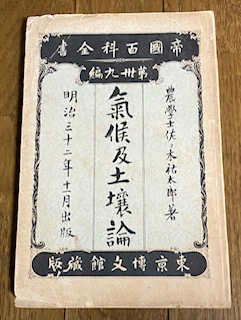 帝國百科全書
第卅九編
農學士佐々木祐太郎著
氣候及土壤論
明治三十二年十一月出版
東京博文館藏版